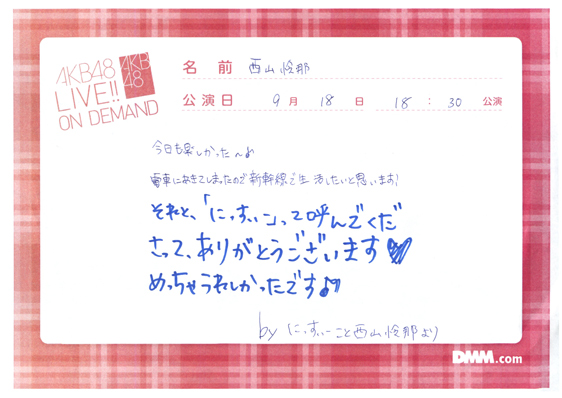 AKB48
LIVE!!
ON DEMAND
AKB
48
名前 西山怜那
公演日 9月18日 18:30 公演
今日も楽しかった〜♪
電車にあきてしまったので新幹線で生活したいと思います!
それと、「にっすぃー」って呼んでくだ
さって、ありがとうございます♥
めっちゃうれしかったです♪
by にっすぃーこと西山怜那より
DMM.com